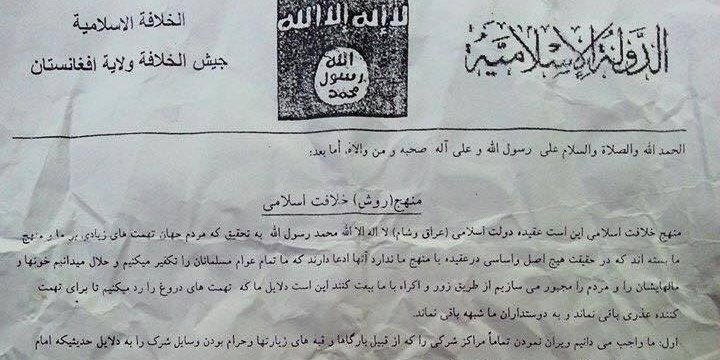 الدَّوْلَةُ الإِسْلَامِيَّة
لا إله إلا الله
الله
رسول
محمد
الخلافة الاسلامية
جيش الخلافة ولاية افغانستان
الحمد الله والصلاة والسلام على رسول الله و على آله صحبه و من والاه، أما بعد:
منهج(روش) خلافت اسلامی
منهج خلافت اسلامی این است عقیده دولت اسلامی (عراق وشام) لا اله الا الله محمد رسول الله به تحقیق که مردم جهان تهمت های زیادی بر ما و منهج
ما بسته اند که در حقیقت هیچ اصل واساسی درعقیده با منهج ما ندارد آنها ادعا دارند که ما تمام عوام مسلمانان را تکفیر میکنیم و حلال میدانیم خونها و
مالهایشان را و مردم را مجبور می سازیم از طریق زور و اکراه با ما بیعت کنند این است دلایل ما که تهمت های دروغ را رد میکنیم تا برای تهمت
کننده عذری باقی نماند و به دوستداران ما شبهه باقی نماند.
اول: ما واجب می دانیم ویران نمودن تماماً مراکز شرکی را که از قبیل بارگاها و قبه های زیارتها وحرام بودن وسایل شرک را به دلایل حدیثیکه امام